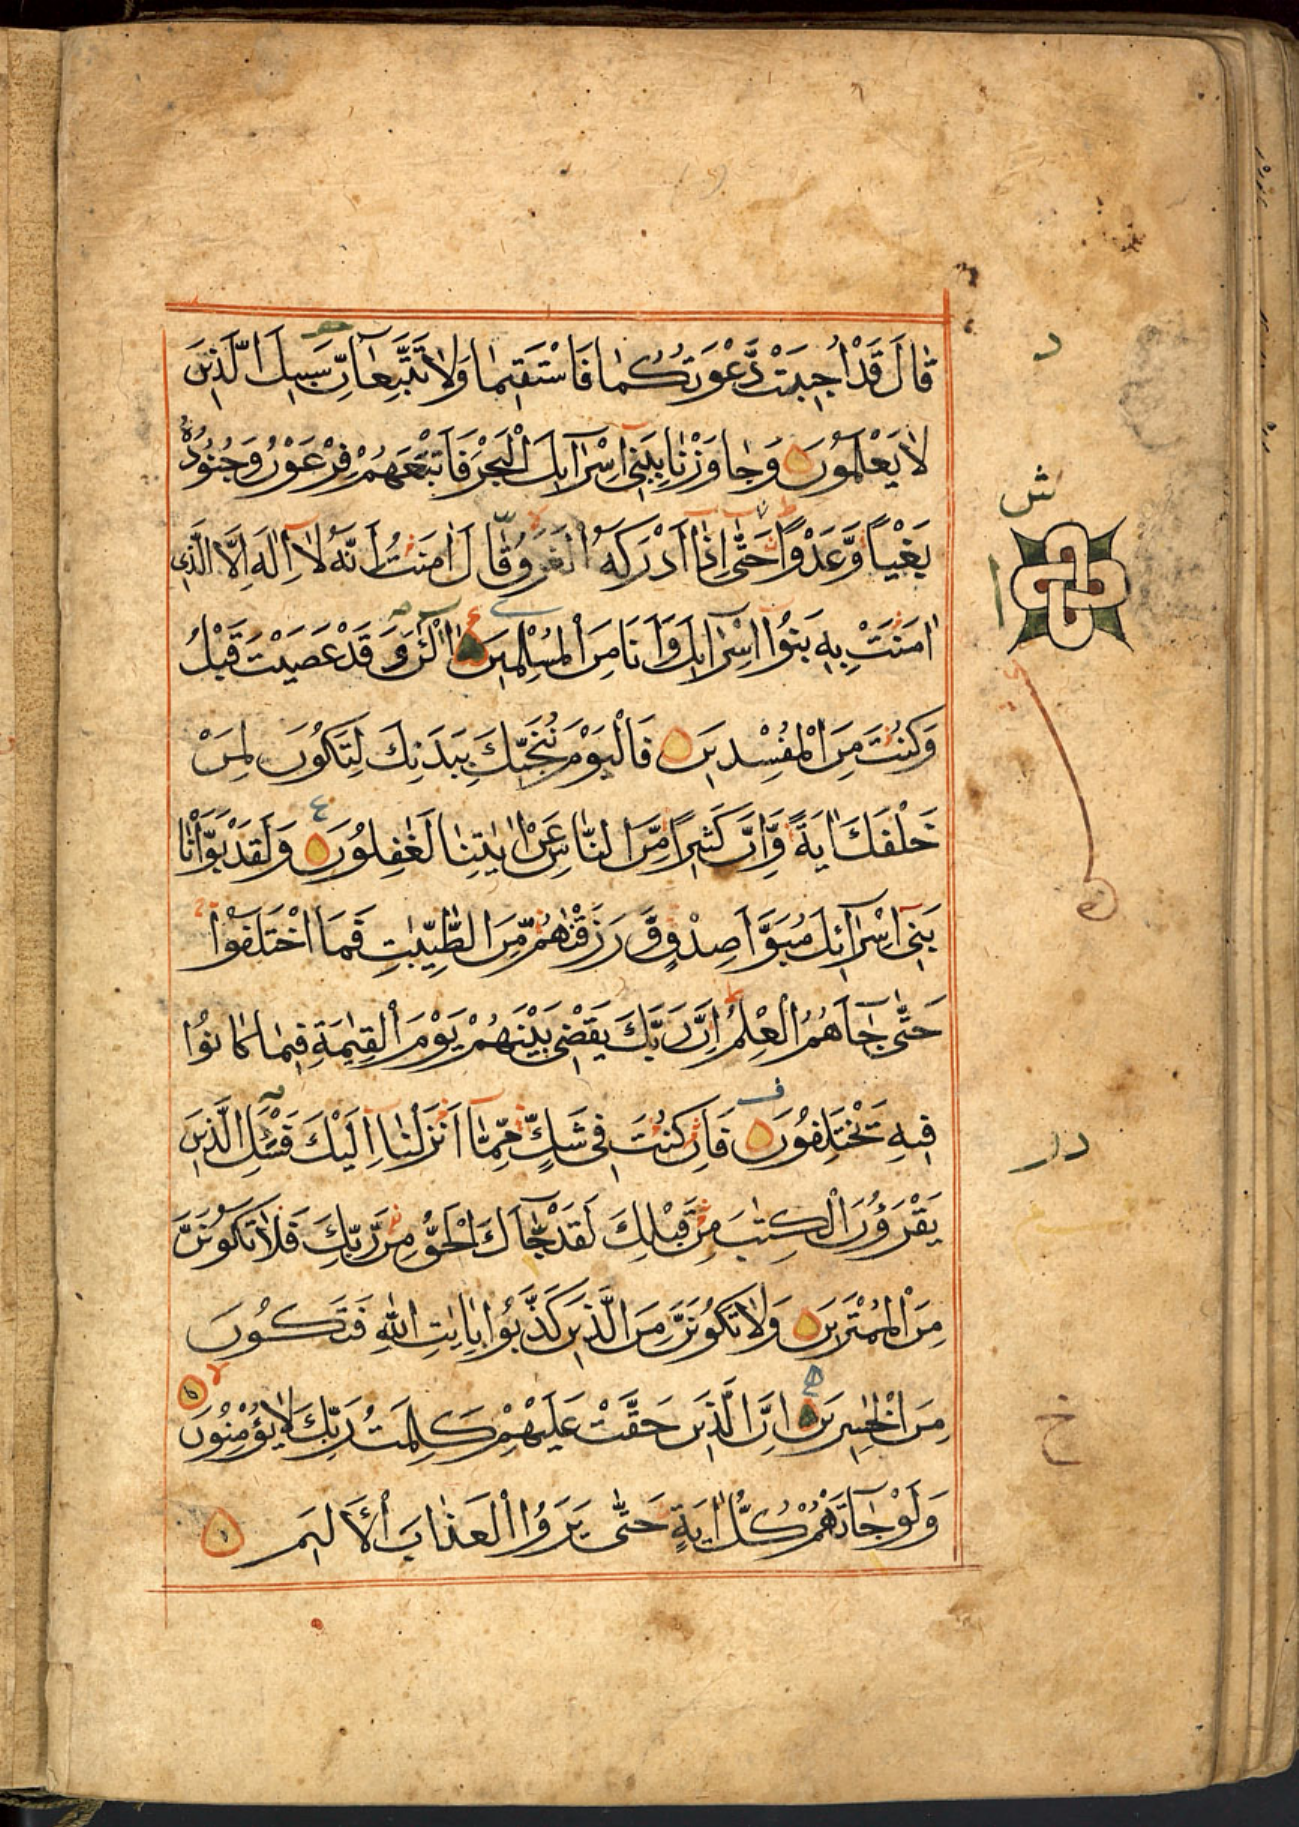 قَالَ قَدْ اُجِيبَتْ دَّعْوَتُكُمَا فَاسْتَقِيمَا وَلَا تَتَّبِعَآنِّ سَبِيلَ الَّذِينَ
لَا يَعْلَمُونَ وَجَاوَزْنَا بِبَنِىٓ اِسْرَآئِلَ الْبَحْرَ فَاَتْبَعَهُمْ فِرْعَوْنُ وَجُنُودُهُ
بَغْيًا وَّعَدْوًا حَتَّىٓ اِذَآ اَدْرَكَهُ الْغَرَقُ قَالَ اٰمَنْتُ اَنَّهُ لَآ اِلٰهَ اِلَّا الَّذِى
اٰمَنَتْ بِهِ بَنُوٓا اِسْرَآئِلَ وَاَنَا مِنَ الْمُسْلِمِينَ آلْئٰنَ وَقَدْ عَصَيْتَ قَبْلُ
وَكُنْتَ مِنَ الْمُفْسِدِينَ فَالْيَوْمَ نُنَجِّيكَ بِبَدَنِكَ لِتَكُونَ لِمَنْ
خَلْفَكَ اٰيَةً وَّاِنَّ كَثِيرًا مِّنَ النَّاسِ عَنْ اٰيٰتِنَا لَغٰفِلُونَ وَلَقَدْ بَوَّاْنَا
بَنِىٓ اِسْرَآئِلَ مُبَوَّاَ صِدْقٍ وَّرَزَقْنٰهُمْ مِّنَ الطَّيِّبٰتِ فَمَا اخْتَلَفُوْا
حَتَّىٰ جَآءَهُمُ الْعِلْمُ اِنَّ رَبَّكَ يَقْضِى بَيْنَهُمْ يَوْمَ الْقِيٰمَةِ فِيمَا كَانُوْا
فِيهِ يَخْتَلِفُونَ فَاِنْ كُنْتَ فِى شَكٍّ مِّمَّآ اَنْزَلْنَآ اِلَيْكَ فَسْـَٔلِ الَّذِينَ
يَقْرَءُوْنَ الْكِتٰبَ مِنْ قَبْلِكَ لَقَدْ جَّآءَكَ الْحَقُّ مِنْ رَّبِّكَ فَلَا تَكُونَنَّ
مِنَ الْمُمْتَرِينَ وَلَا تَكُونَنَّ مِنَ الَّذِينَ كَذَّبُوْا بِاٰيٰتِ اللّٰهِ فَتَكُونَ
مِنَ الْخٰسِرِينَ اِنَّ الَّذِينَ حَقَّتْ عَلَيْهِمْ كَلِمَتُ رَبِّكَ لَا يُؤْمِنُونَ
وَلَوْ جَآءَتْهُمْ كُلُّ اٰيَةٍ حَتَّىٰ يَرَوُا الْعَذَابَ الْاَلِيمَ